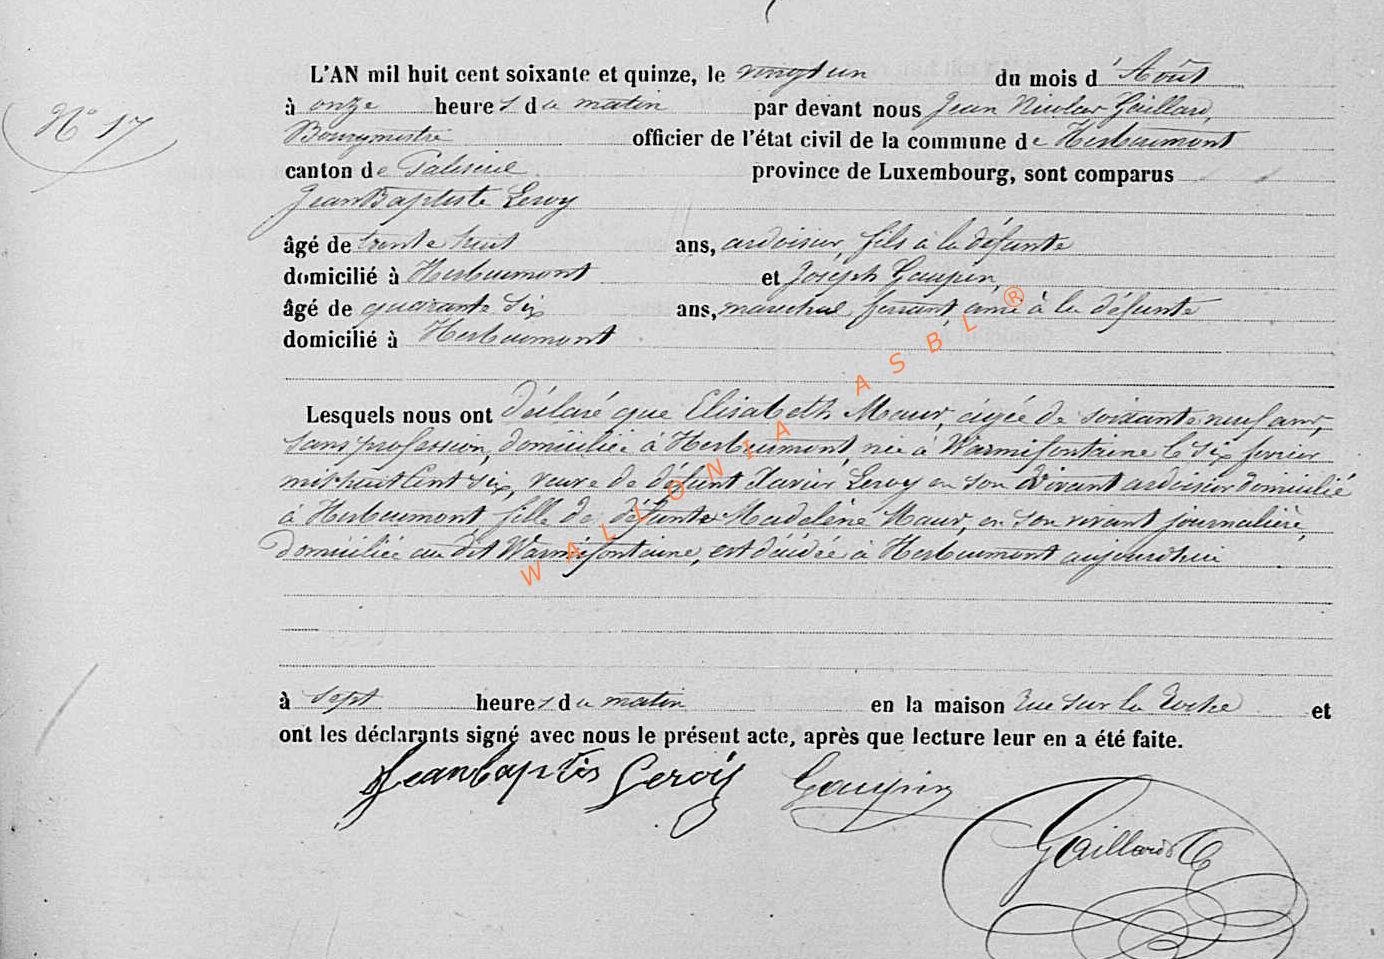 N° 17
L'AN mil huit cent soixante et quinze, le vingt un du mois d'Août
à onze heures du matin par devant nous Jean Nicolas Gaillard,
Bourgmestre officier de l'état civil de la commune de Herbeumont
canton de Paliseul province de Luxembourg, sont comparus
Jean Baptiste Leroy
âgé de trente huit ans, ardoisier, fils à la défunte
domicilié à Herbeumont et Joseph Goupin,
âgé de quarante six ans, maréchal ferrant, ami à la défunte
domicilié à Herbeumont
Lesquels nous ont déclaré que Elisabeth Maur, âgée de soixante neuf ans,
sans profession, domiciliée à Herbeumont, née à Warmifontaine le six fevrier
mil huit cent six, veuve de défunt Xavier Leroy en son vivant ardoisier domicilié
à Herbeumont, fille de défunte Madelène Maur, en son vivant journalière,
domiciliée au dit Warmifontaine, est décédée à Herbeumont aujourd'hui
à sept heures du matin en la maison rue sur la Roche et
ont les déclarants signé avec nous le présent acte, après que lecture leur en a été faite.
Jean baptis Leroÿ Goupin
Gaillard
WALLONIA ASBL ®